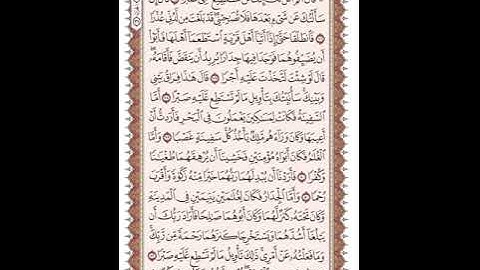 سَأَلْتُكَ عَن شَيْءٍ بَعْدَهَا فَلَا تُصَاحِبْنِي قَدْ بَلَغْتَ مِن لَّدُنِّي عُذْرًا
فَانطَلَقَا حَتَّىٰ إِذَا أَتَيَا أَهْلَ قَرْيَةٍ اسْتَطْعَمَا أَهْلَهَا فَأَبَوْا
أَن يُضَيِّفُوهُمَا فَوَجَدَا فِيهَا جِدَارًا يُرِيدُ أَن يَنقَضَّ فَأَقَامَهُ
قَالَ لَوْ شِئْتَ لَتَّخَذْتَ عَلَيْهِ أَجْرًا قَالَ هَٰذَا فِرَاقُ بَيْنِي
وَبَيْنِكَ سَأُنَبِّئُكَ بِتَأْوِيلِ مَا لَمْ تَسْتَطِع عَّلَيْهِ صَبْرًا أَمَّا
السَّفِينَةُ فَكَانَتْ لِمَسَاكِينَ يَعْمَلُونَ فِي الْبَحْرِ فَأَرَدتُّ أَنْ
أَعِيبَهَا وَكَانَ وَرَاءَهُم مَّلِكٌ يَأْخُذُ كُلَّ سَفِينَةٍ غَصْبًا وَأَمَّا
الْغُلَامُ فَكَانَ أَبَوَاهُ مُؤْمِنَيْنِ فَخَشِينَا أَن يُرْهِقَهُمَا طُغْيَانًا
وَكُفْرًا فَأَرَدْنَا أَن يُبْدِلَهُمَا رَبُّهُمَا خَيْرًا مِّنْهُ زَكَاةً وَأَقْرَبَ
رُحْمًا وَأَمَّا الْجِدَارُ فَكَانَ لِغُلَامَيْنِ يَتِيمَيْنِ فِي الْمَدِينَةِ
وَكَانَ تَحْتَهُ كَنزٌ لَّهُمَا وَكَانَ أَبُوهُمَا صَالِحًا فَأَرَادَ رَبُّكَ أَن
يَبْلُغَا أَشُدَّهُمَا وَيَسْتَخْرِجَا كَنزَهُمَا رَحْمَةً مِّن رَّبِّكَ
وَمَا فَعَلْتُهُ عَنْ أَمْرِي ذَٰلِكَ تَأْوِيلُ مَا لَمْ تَسْطِع عَّلَيْهِ صَبْرًا